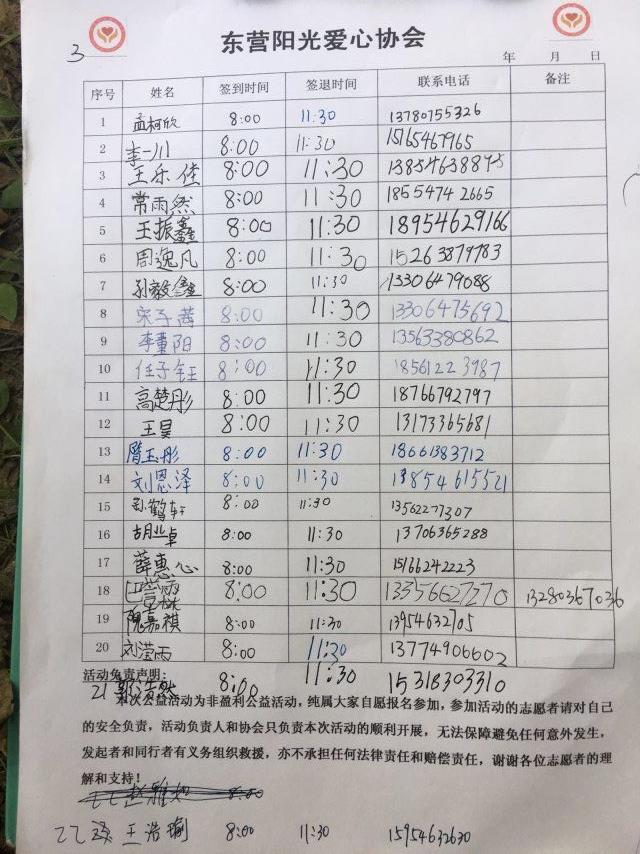 3
东营阳光爱心协会
年 月 日
序号 姓名 签到时间 签退时间 联系电话 备注
1 孟柯欣 8:00 11:30 13780755326
2 李一川 8:00 11:30 15165467965
3 王乐佳 8:00 11:30 13854638895
4 常雨然 8:00 11:30 18554742665
5 王振鑫 8:00 11:30 18954629166
6 周逸凡 8:00 11:30 15263879783
7 孙毅鑫 8:00 11:30 13306479088
8 宋子茜 8:00 11:30 13306475692
9 李董阳 8:00 11:30 13563380862
10 任子钰 8:00 11:30 18561223987
11 高楚彤 8:00 11:30 18766792797
12 王昊 8:00 11:30 13173365681
13 隋玉彤 8:00 11:30 18661383712
14 刘恩泽 8:00 11:30 13854615521
15 孙鹤轩 8:00 11:30 13562277307
16 胡业卓 8:00 11:30 13706365288
17 薛惠心 8:00 11:30 15166242223
18 8:00 11:30 13356627270 13280367036
19 隗嘉祺 8:00 11:30 13954632705
20 刘滢雨 8:00 11:30 13774906602
活动免责声明:
21 郭浩然 8:00 11:30 15318303310
本次公益活动为非盈利公益活动，纯属大家自愿报名参加，参加活动的志愿者请对自己
的安全负责，活动负责人和协会只负责本次活动的顺利开展，无法保障避免任何意外发生，
发起者和同行者有义务组织救援，亦不承担任何法律责任和赔偿责任，谢谢各位志愿者的理
解和支持！
22 王浩瑜 8:00 11:30 15954632630